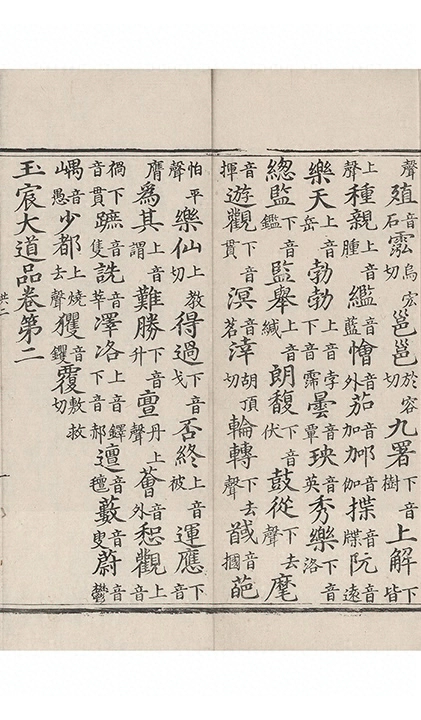 聲殖音石霐烏宏切邕邕於容切九署下音樹上解下皆
上聲種親上音腫繿音藍懀音外茄音加𨚗音伽揲音牒阮音遠
樂天上音岳勃勃下音孛霈曇音覃玦音英秀樂下音洛
總監下音鑑監舉上音緘朗馥下音伏鼓從下去聲麾
音揮遊觀下音貫溟音茗涬胡頂切輪轉下去聲馘音摑葩
怕平聲樂仙上教切得過下音戈否終上音彼運應下音
膺為其上音謂難勝下音升亶丹上聲薈音外恕觀上音
禍下音貫蹠音隻詵音莘澤洛上音鐸下音郝邅音亶藪音叟蔚音鬱
嵎音愚少都上燒去聲玃音钁覆敷救切
玉宸大道品卷第二